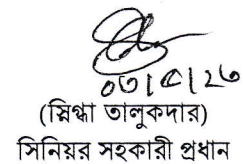 ০৩/৫/২৬
(স্নিগ্ধা তালুকদার)
সিনিয়র সহকারী প্রধান